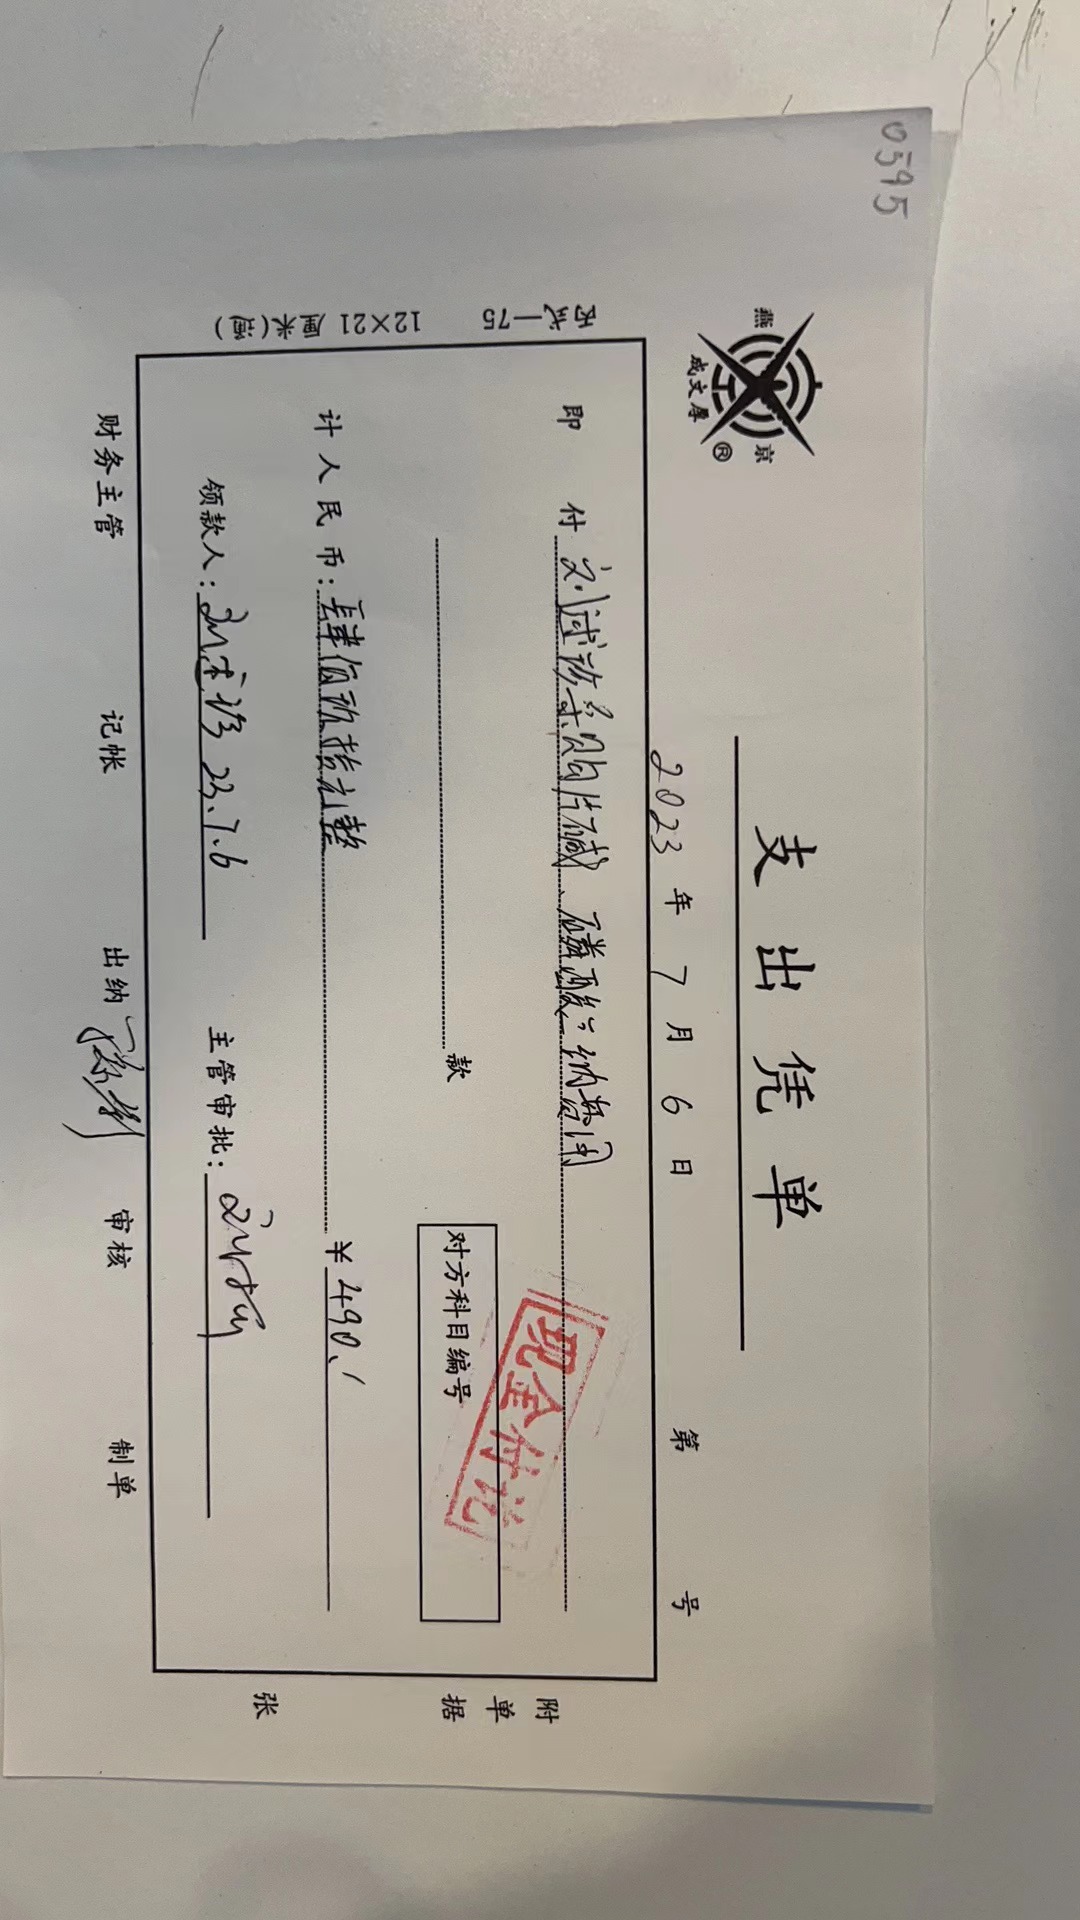 0595
燕京
成文厚
®
支出凭单
2023年7月6日 第 号
即付 购片碱、磷酸三钠费用
款
对方科目编号
现金付讫
计人民币：肆佰玖拾元整 ¥490.
领款人： 23.7.6 主管审批：
财务主管 记帐 出纳 审核 制单
附单据 张
丙式—75 12×21厘米(通)